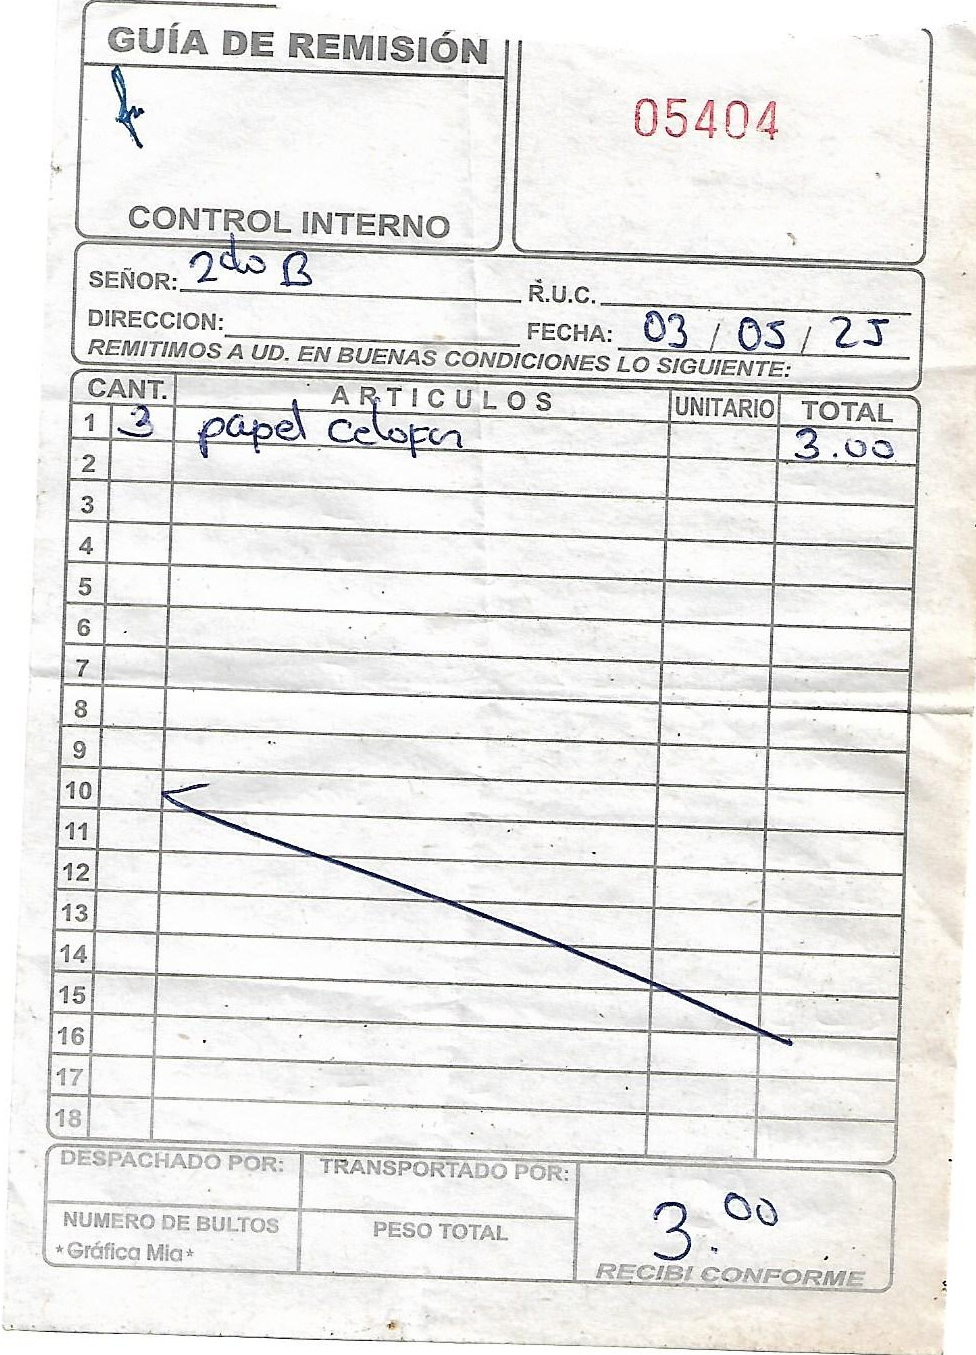 GUÍA DE REMISIÓN
05404
CONTROL INTERNO
SEÑOR: 2do B R.U.C.
DIRECCION: FECHA: 03 / 05 / 25
REMITIMOS A UD. EN BUENAS CONDICIONES LO SIGUIENTE:
CANT. ARTICULOS UNITARIO TOTAL
1 3 papel celofan 3.00
2
3
4
5
6
7
8
9
10
11
12
13
14
15
16
17
18
DESPACHADO POR: TRANSPORTADO POR:
3.00
NUMERO DE BULTOS PESO TOTAL
*Gráfica Mia*
RECIBI CONFORME